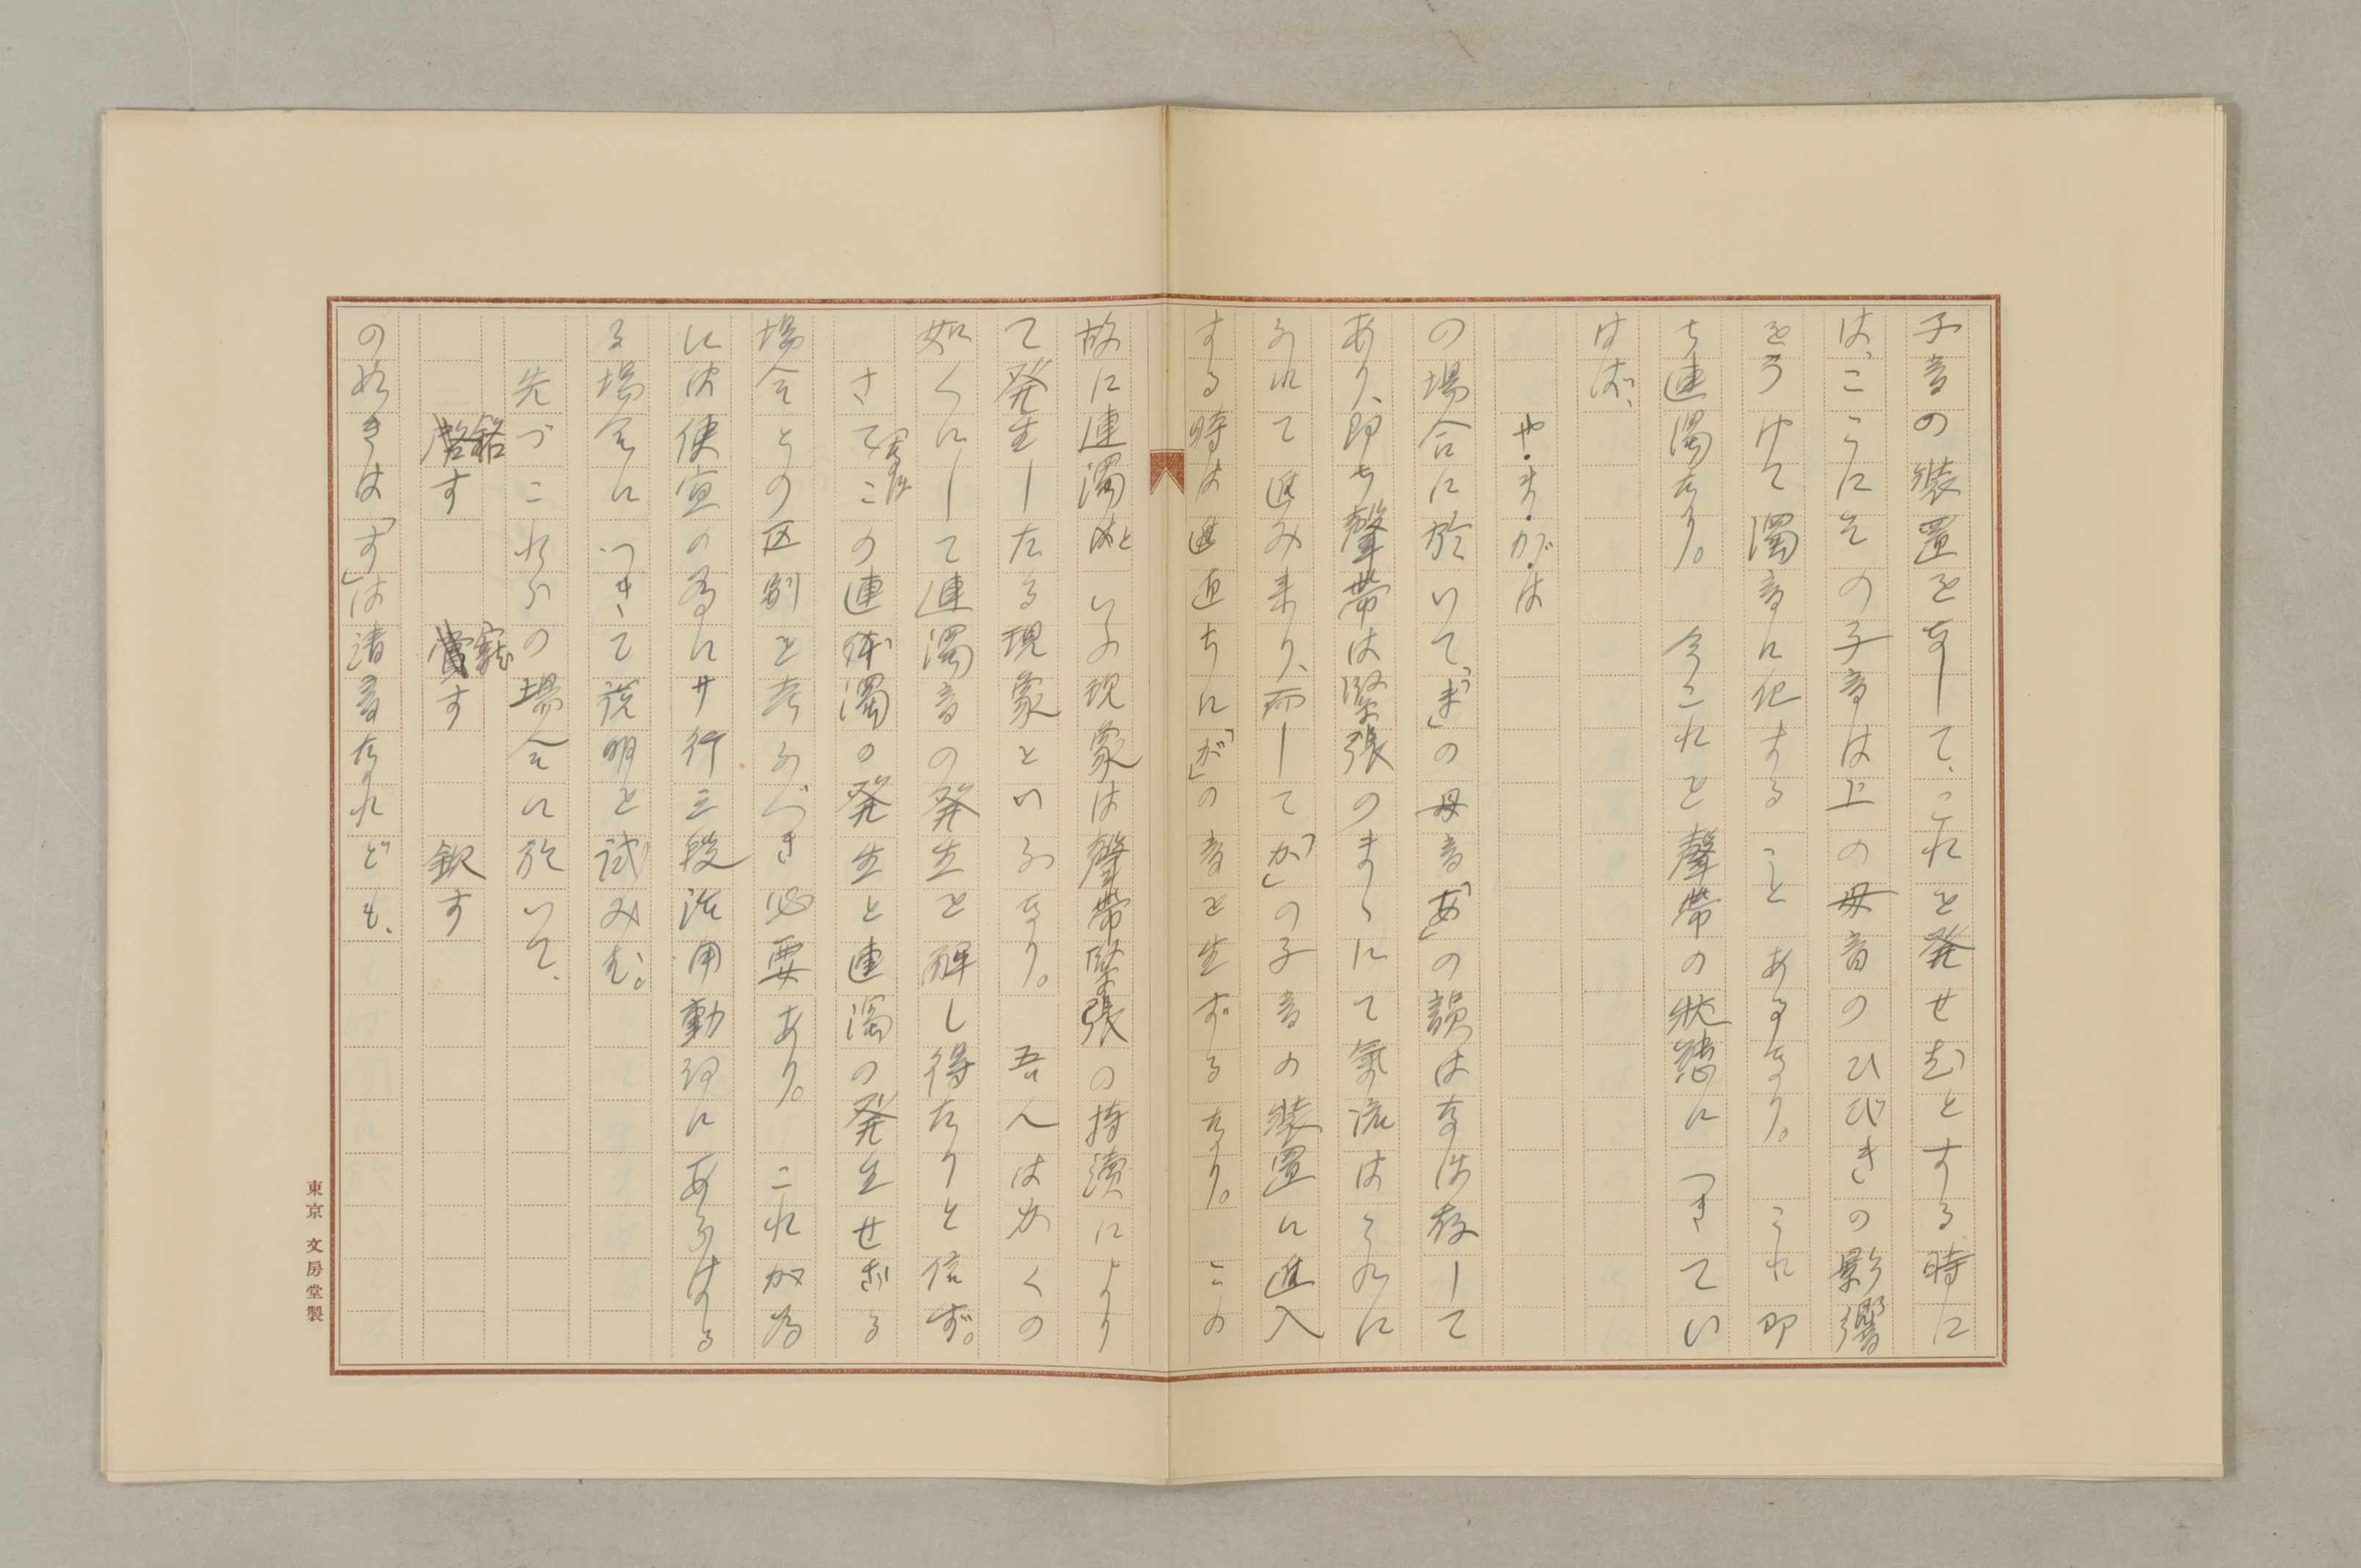 子音の装置をなして、これを発せむとする時に
は、こゝにその子音は上の母音のひびきの影響
をうけて濁音に化することあるなり。これ即
ち連濁なり。今これを聲帯の状態につきてい
はば、
や・ま・が・は
の場合に於いて、「ま」の母音「あ」の韻はなほ存して
あり、即ち聲帯は緊張のまゝにて氣流はこれに
ふれて進み来り、而して「か」の子音の装置に進入
する時は進直ちに「が」の音を生ずるなり。この
故に連濁といふ現象は聲帯緊張の持續により
て発生したる現象といふなり。吾人はかくの
如くにして連濁音の発生を解し得たりと信ず。
さてこの連濁の発生と連濁の発生せざる
場合との区別を考ふべき必要あり。これが為
には便宜の為にサ行三段活用動詞にあらはる
る場合につきて説明を試みむ。
先づこれらの場合に於いて、
銘す 寵す 歎す
の如きは「す」は清音なれども、
東京 文房堂製